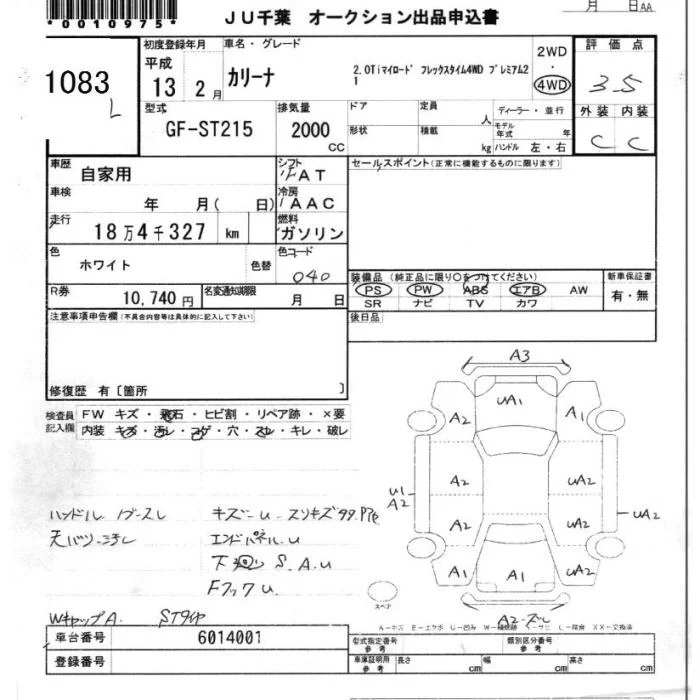 *0010975*
JU千葉 オークション出品申込書
月 日AA
1083
L
初度登録年月
平成
13 2月
車名・グレード
カリーナ
2.0Tiマイロード フレックスタイム4WD プレミアム2
1
2WD
・
4WD
評価点
3.5
外装 内装
C C
型式
GF-ST215
排気量
2000
CC
ドア
形状
定員
人
積載
kg
ディーラー・並行
モデル年式 年
ハンドル 左・右
車歴
自家用
シフト
AT
車検
年 月( 日)
冷房
AAC
走行
18万4千327 km
燃料
ガソリン
色
ホワイト
色替
色コード
040
R券
10,740円
名変通知期限
月 日
セールスポイント(正常に機能するものに限ります)
装備品(純正品に限り○をつけてください)
PS PW ABS エアB AW
SR ナビ TV カワ
新車保証書
有・無
後日品
注意事項申告欄(不具合内容等は具体的に記入して下さい)
修復歴 有〔箇所 〕
検査員記入欄
FW キズ・飛石・ヒビ割・リペア跡・×要
内装 キズ・汚レ・コゲ・穴・スレ・キレ・破レ
ハンドル
キズー U
エンドパネル.U
S.A.U
FフックU
WキャップA.
A3
UA1
A2
A1
A2
UA2
U1
A2
A2
UA2
UA2
A1
A1
UA2
A2
スペア
車台番号
6014001
登録番号
型式指定番号
参考
類別区分番号
参考
車庫証明用
参考
長さ cm
幅 cm
高さ cm